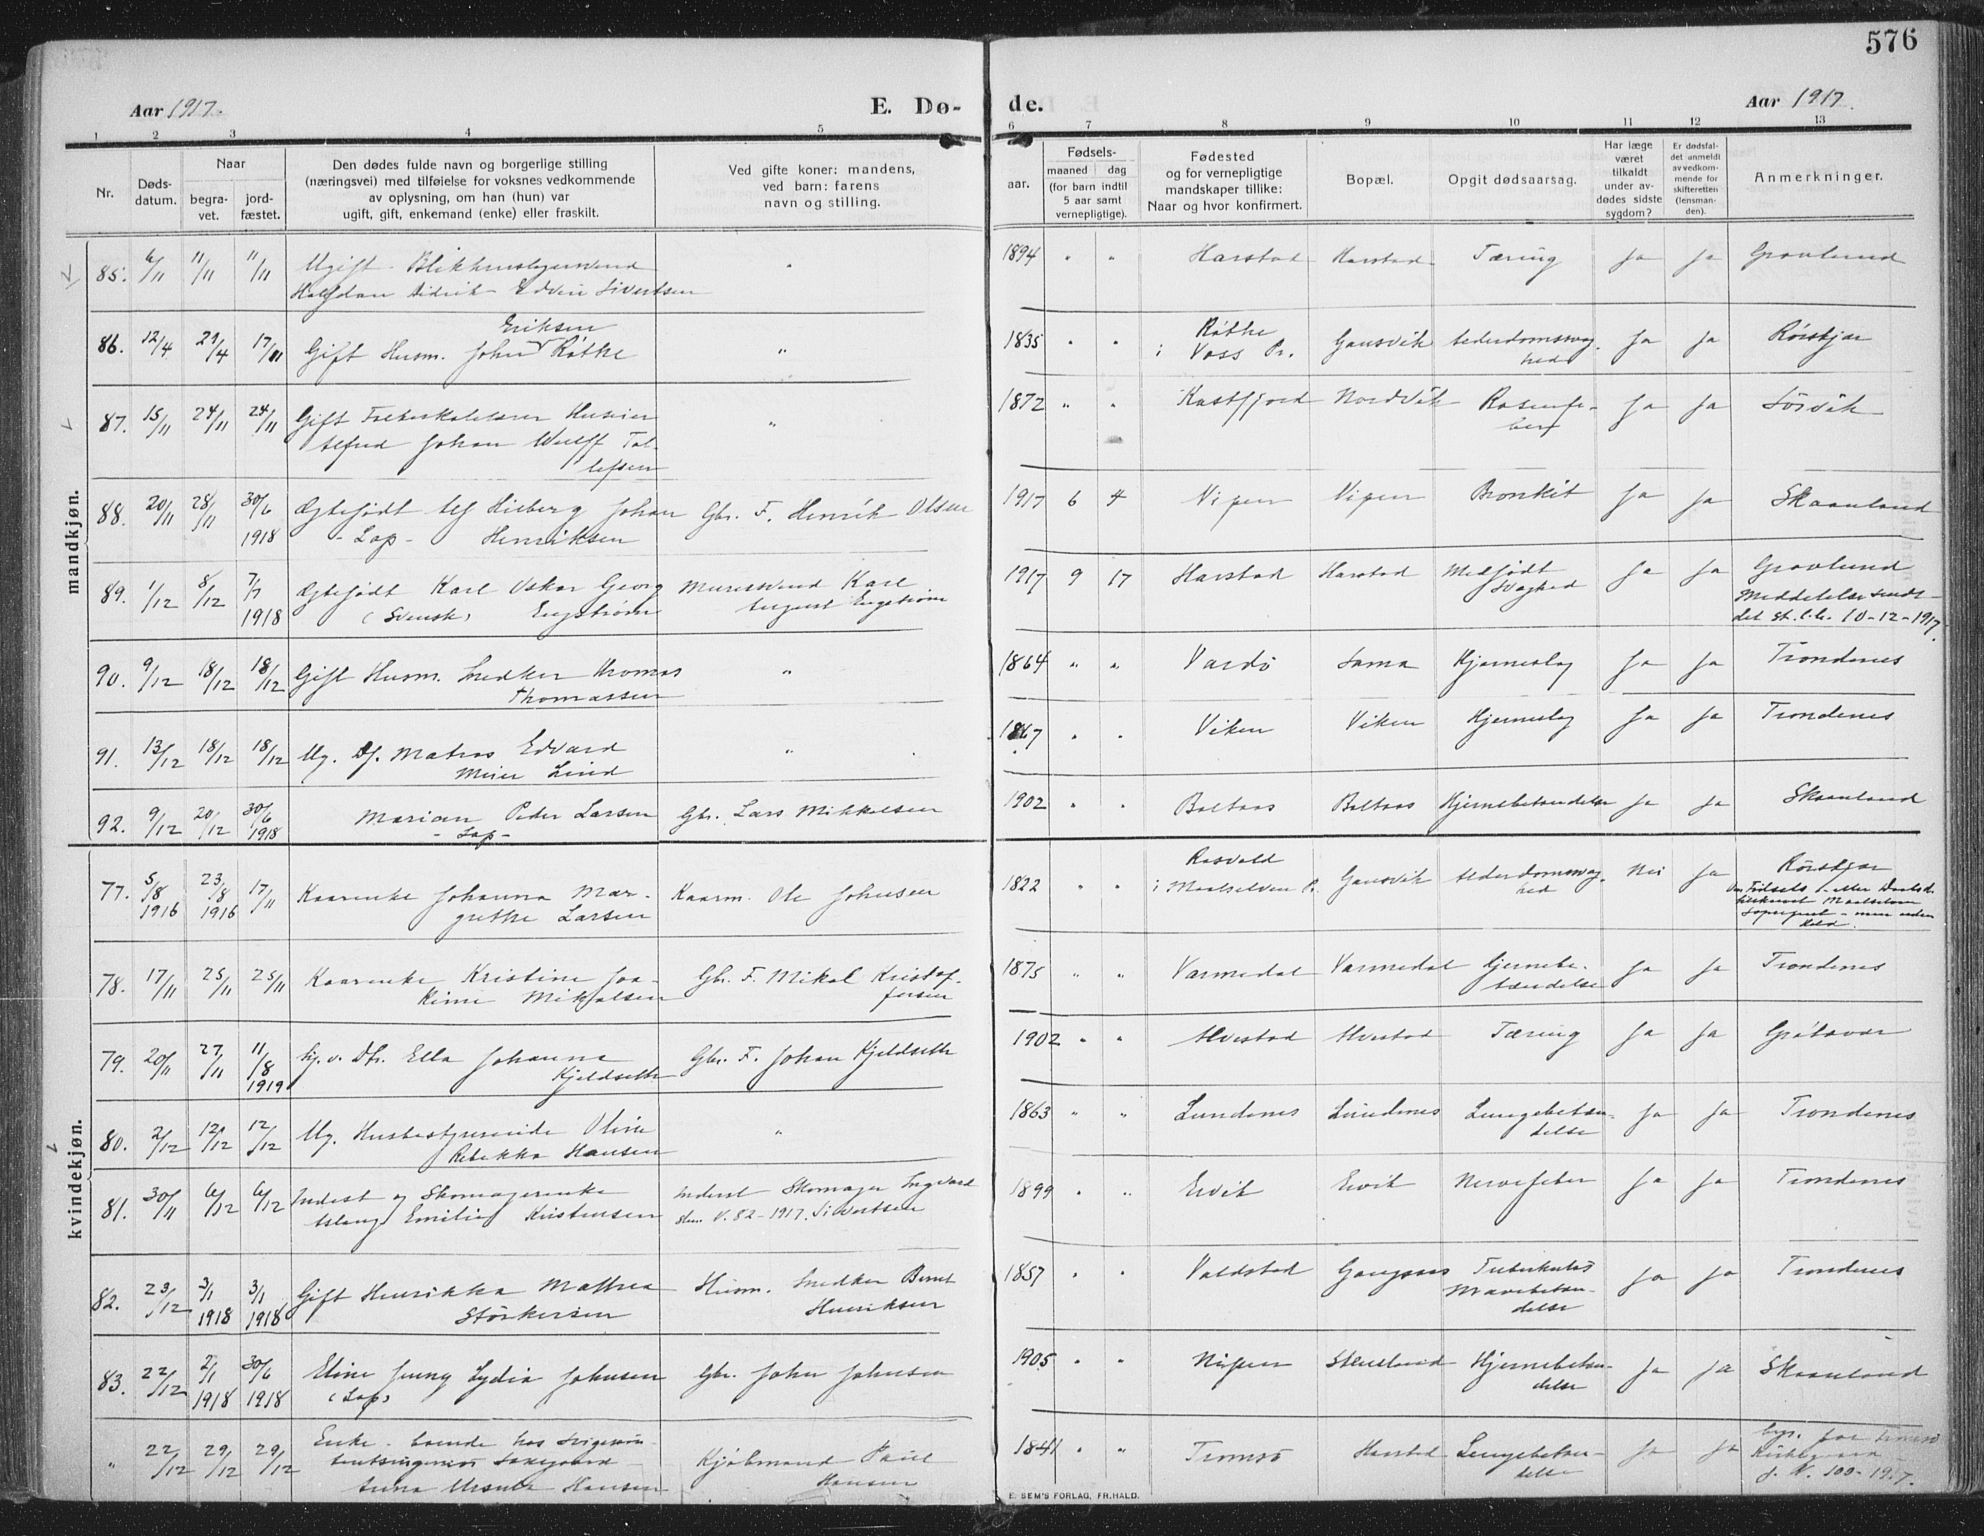 576
Aar 1917.
E. Dø-
de.
Aar 1917.
1 2 3 4 5 6 7 8 9 10 11 12 13
Nr.
Døds-
datum.
Naar
begra-
vet.
jord-
fæstet.
Den dødes fulde navn og borgerlige stilling
(næringsvei) med tilføielse for voksnes vedkommende
av oplysning, om han (hun) var
ugift, gift, enkemand (enke) eller fraskilt.
Ved gifte koner: mandens,
ved barn: farens
navn og stilling.
Fødsels-
aar.
maaned dag
(for barn indtil
5 aar samt
vernepligtige).
Fødested
og for vernepligtige
mandskaper tillike:
Naar og hvor konfirmert.
Bopæl.
Opgit dødsaarsag.
Har læge
været
tilkaldt
under av-
dødes sidste
sygdom?
Er dødsfal-
det anmeldt
av vedkom-
mende for
skifteretten
(lensman-
den).
Anmerkninger.
mandkjøn.
85. 6/11 11/11 11/11 Ugift " 1894 " " Harstad Harstad Tæring Ja Ja Gravlund
Halfdan Didrik Edvin Sivertsen
Eriksen
86. 12/4 21/4 17/11 Gift Husm. John Røthe " 1835 " " Røthe Gausvik Alderdomssvag- Ja Ja Rørskjær
i Voss Pr. hed
87. 15/11 24/11 24/11 Gift " 1872 " " Kastfjord Nordvik Ja Ja Sörvik
Johan Wulff Tol-
lefsen
88. 20/11 28/11 30/6 Ægtefødt Johan Gbr. F. Henrik Olsen 1917 6 4 Bronkit Ja Ja Skaanland
1918 - Lap - Henriksen
89. 1/12 8/12 7/7 Ægtefødt Karl Oskar Georg Karl 1917 9 17 Harstad Harstad Medfødt Ja Ja Gravlund
1918 (Svensk) Engstrøm August Engstrøm Svaghed Meddelelse sendt
10-12-1917.
90. 9/12 18/12 18/12 Gift Husm. Snedker Thomas " 1864 " " Vardö Sama Hjerneslag Ja Ja Trondenes
Thomassen
91. 13/12 18/12 18/12 Ug. Df. Matros Edvard " 1867 " " Viken Viken Hjerneslag Ja Ja Trondenes
Meier Lind
92. 9/12 20/12 30/6 Marian Peder Larsen Gbr. Lars Mikkelsen 1902 " " Boltaas Boltaas Hjernebetændelse Ja Ja Skaanland
1918 - Lap -
kvindekjøn.
77. 5/8 23/8 17/11 Kaarenke Johanna Mar- Kaarm. Ole Johnsen 1822 " " Gausvik Alderdomssvag- Nei Ja Rörskjær
1916 1916 grethe Larsen i Maalselven Pr. hed
78. 17/11 25/11 25/11 Kaarenke Kristine Joa- Gbr. F. Mikal Kristof- 1875 " " Varmedal Varmedal Hjernebe- Ja Ja Trondenes
kime Mikalsen fersen tændelse
79. 20/11 27/11 11/8 Hj.v. Dtr. Ella Johanna Gbr. F. Johan Kjeldseth 1902 " " Alvestad Alvestad Tæring Ja Ja Gråtavær
1919 Kjeldseth
80. 2/12 12/12 12/12 Ug. Husbestyrerinde Oline " 1863 " " Lundenes Lundenes Lungebetæn- Ja Ja Trondenes
Rebekka Hansen delse
81. 30/11 6/12 6/12 Inderst og Skomagerenke Inderst Skomager Ingvard 1899 " " Ervik Ervik Nervefeber Ja Ja Trondenes
Aslaug Emilie Kristensen V. 82-1917. Sivertsen
82. 23/12 3/1 3/1 Gift Henrikka Mathea Husm. Snedker Bernt 1857 " " Voldstad Tuberkuløs Ja Ja Trondenes
1918 1918 Störkersen Henriksen Mavebetæn-
delse
83. 22/12 2/1 30/6 Eline Jenny Lydia Johnsen Gbr. John Johnsen 1905 " " Hjernebetæn- Ja Ja Skaanland
1918 1918 (Lap) delse
" 22/12 29/12 29/12 Enke - boende hos Kjöbmand Paul 1841 " " Tromsö Harstad Lungebetæn- Ja Ja
Anna Ursula Hansen Hansen delse N. 100-1917.
E. SEM'S FORLAG, FR.HALD.